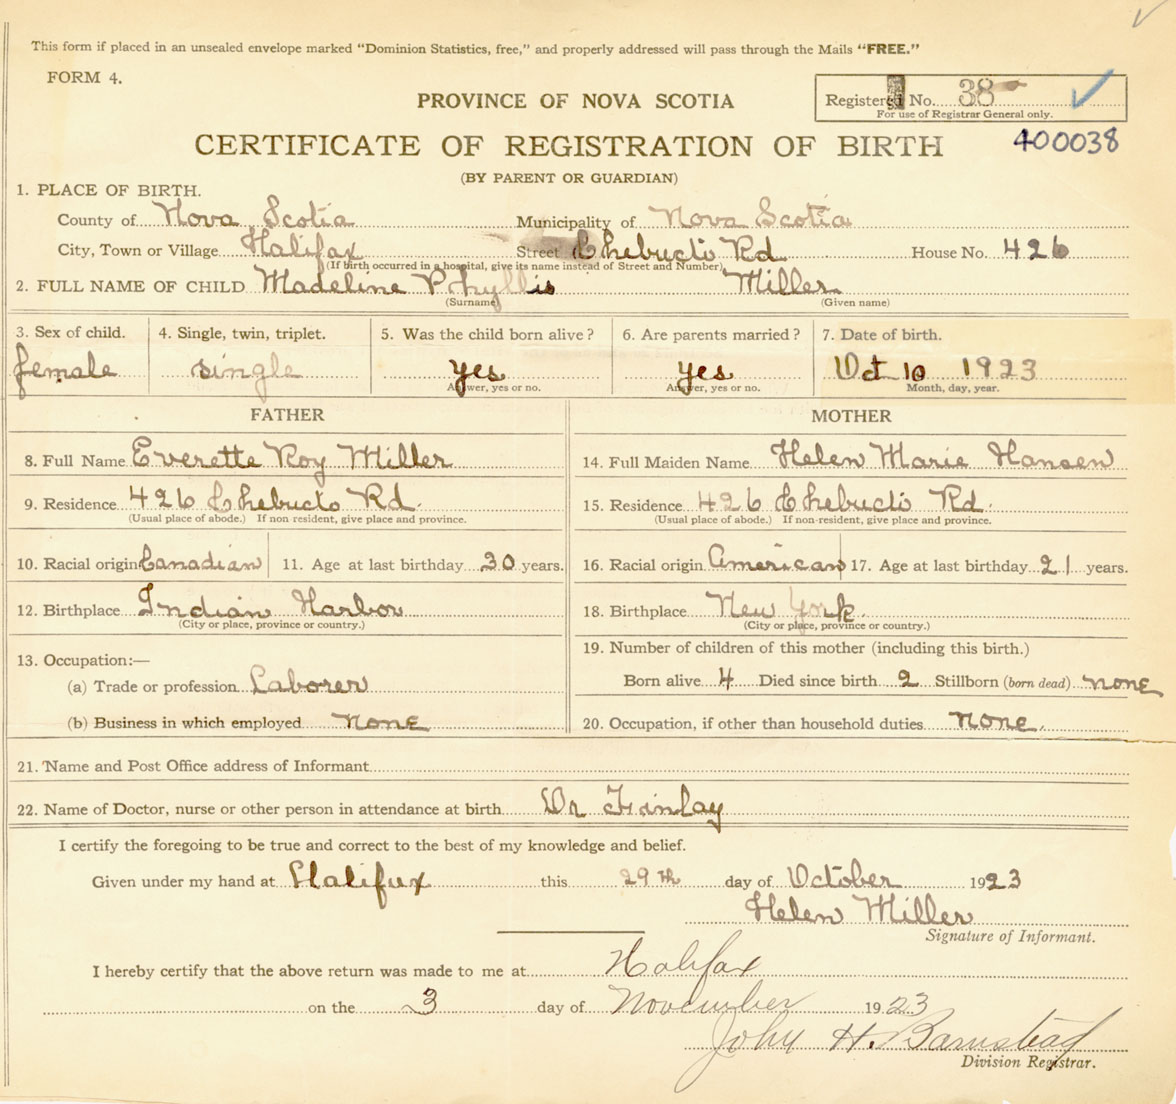 This form if placed in an unsealed envelope marked "Dominion Statistics, free," and properly addressed will pass through the Mails "FREE."
FORM 4.
PROVINCE OF NOVA SCOTIA
Registered No. 38
For use of Registrar General only.
CERTIFICATE OF REGISTRATION OF BIRTH 400038
(BY PARENT OR GUARDIAN)
1. PLACE OF BIRTH.
County of Nova Scotia Municipality of Nova Scotia
City, Town or Village Halifax Street Chebucto Rd House No. 426
(If birth occurred in a hospital, give its name instead of Street and Number)
2. FULL NAME OF CHILD Madeline Phyllis Miller
(Surname) (Given name)
3. Sex of child. 4. Single, twin, triplet. 5. Was the child born alive? 6. Are parents married? 7. Date of birth.
female single yes yes Oct 10 1923
Answer, yes or no. Answer, yes or no. Month, day, year.
FATHER MOTHER
8. Full Name Everette Roy Miller 14. Full Maiden Name Helen Marie Hansen
9. Residence 426 Chebucto Rd. 15. Residence 426 Chebucto Rd.
(Usual place of abode.) If non resident, give place and province. (Usual place of abode.) If non-resident, give place and province.
10. Racial origin Canadian 11. Age at last birthday 30 years. 16. Racial origin American 17. Age at last birthday 21 years.
12. Birthplace Indian Harbor 18. Birthplace New York
(City or place, province or country.) (City or place, province or country.)
13. Occupation:— 19. Number of children of this mother (including this birth.)
(a) Trade or profession Laborer Born alive 4 Died since birth 2 Stillborn (born dead) none
(b) Business in which employed none 20. Occupation, if other than household duties none.
21. Name and Post Office address of Informant
22. Name of Doctor, nurse or other person in attendance at birth Dr Finlay
I certify the foregoing to be true and correct to the best of my knowledge and belief.
Given under my hand at Halifax this 29th day of October 1923
Helen Miller
Signature of Informant.
I hereby certify that the above return was made to me at Halifax
on the 3 day of November 1923
John H. Barnstead
Division Registrar.